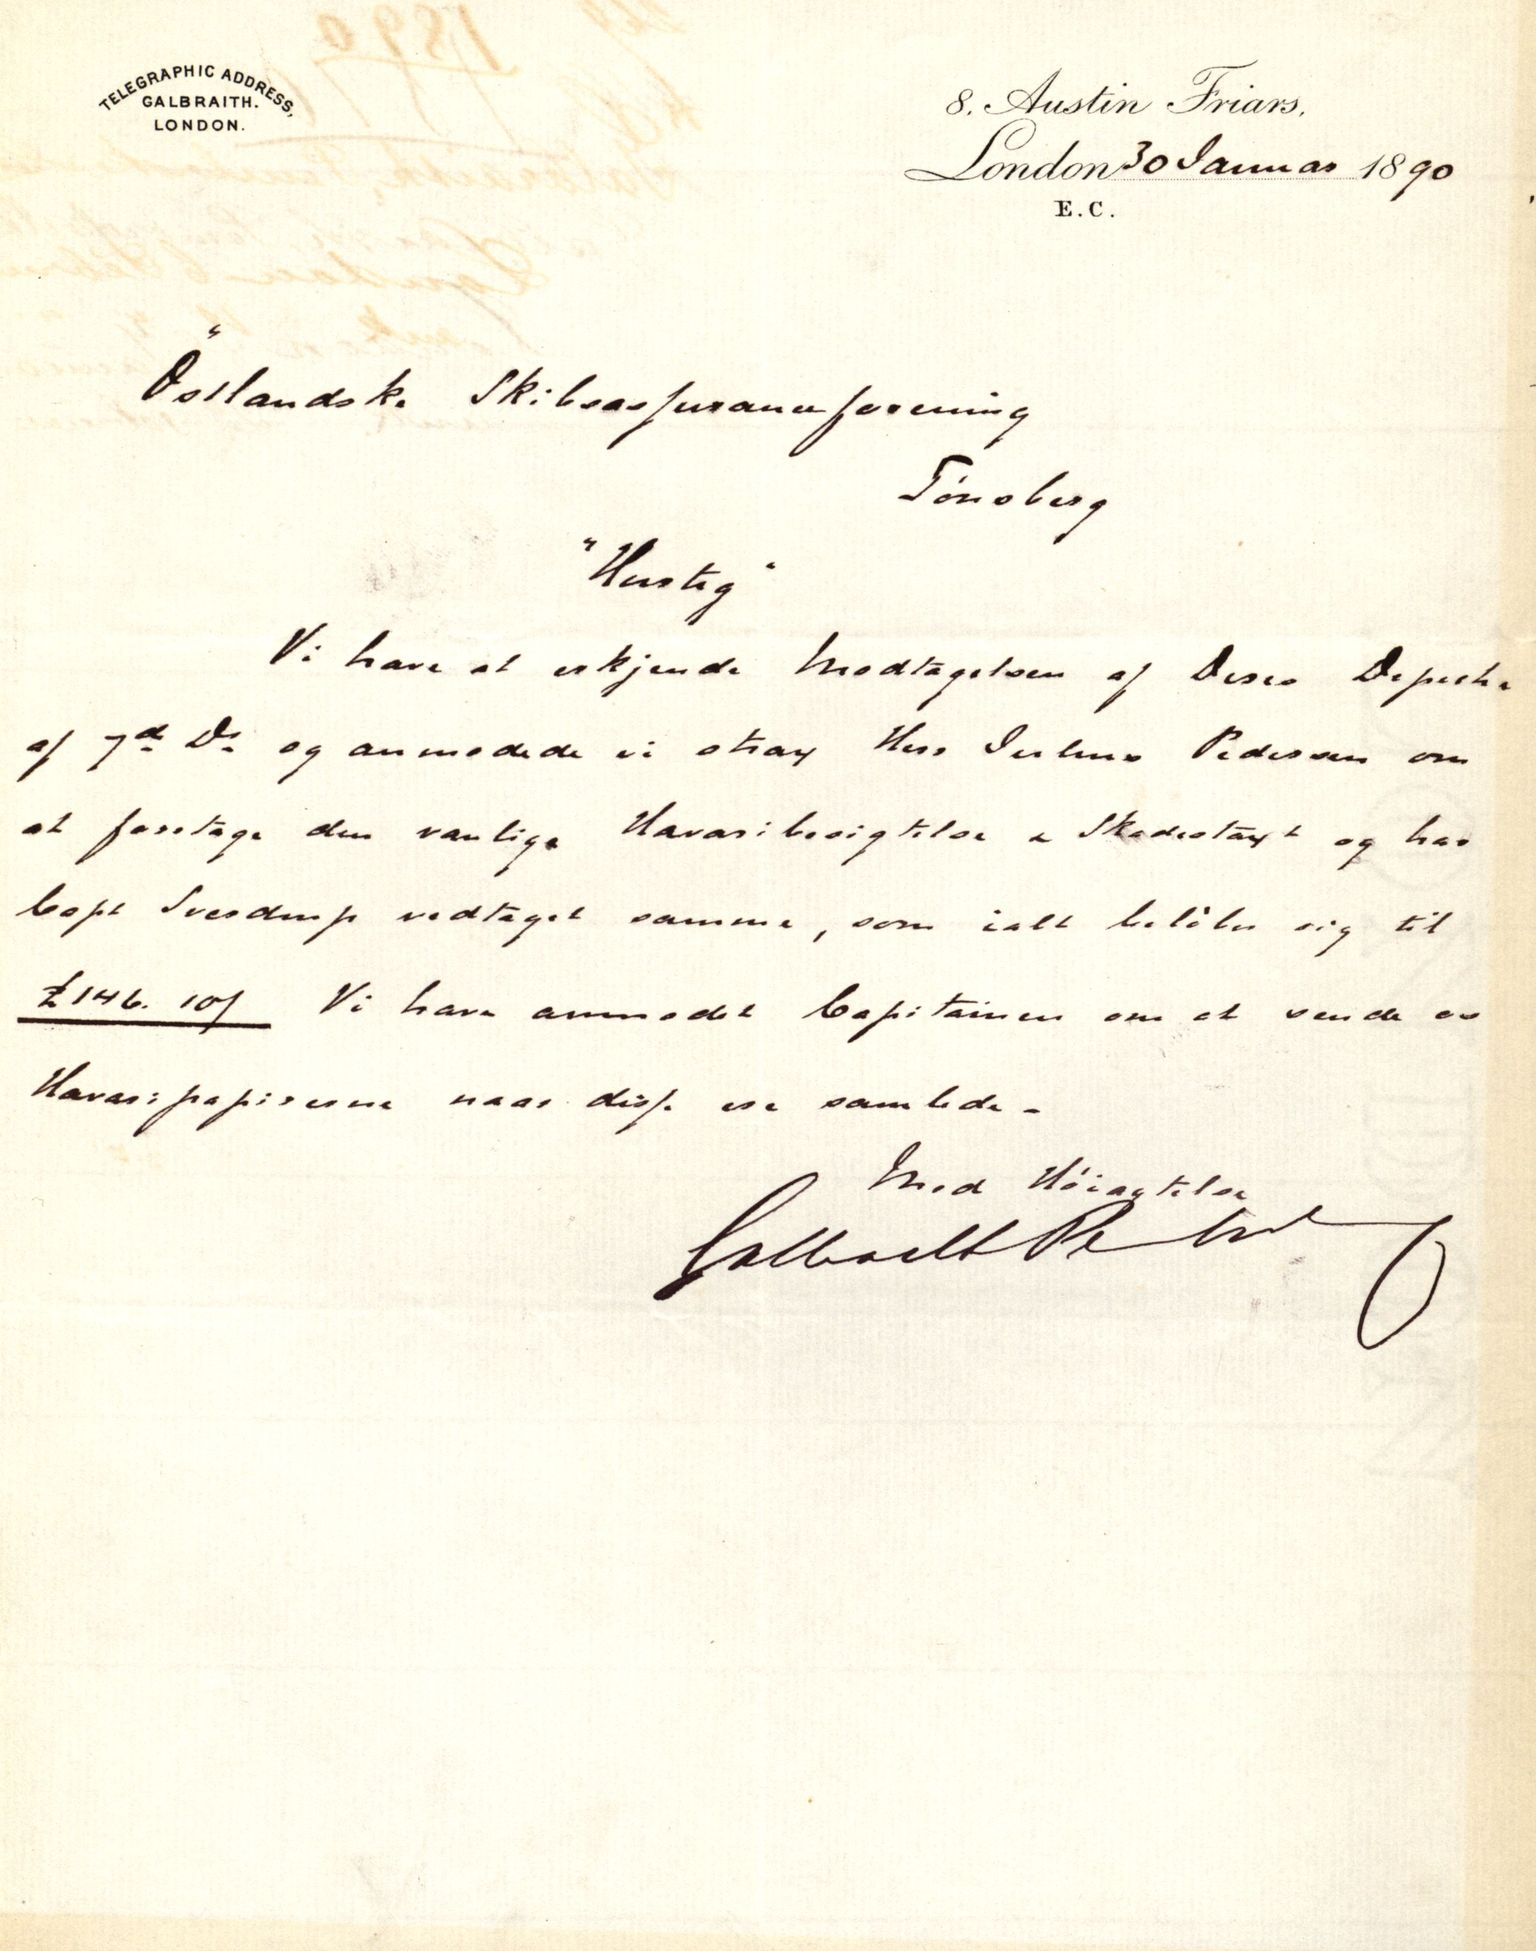 TELEGRAPHIC ADDRESS,
GALBRAITH.
LONDON.
8. Austin Friars,
London 30 Januar 1890
E.C.
Östlandske Skibsassuranceforening
Tönsberg
"Hurtig"
Vi have at erkjende Modtagelsen af Deres Depeche
af 7d Ds og anmodede vi strax Herr Julius Pedersen om
at foretage den vanlige Havaribesigtelse & Skadestaxt og har
Capt Sverdrup vedtaget samme, som ialt belöber sig til
£146. 10/ Vi have anmodet Capitainen om at sende os
Havaripapirerne naar disse ere samlede.
Med Höiagtelse
Galbraith Pembroke